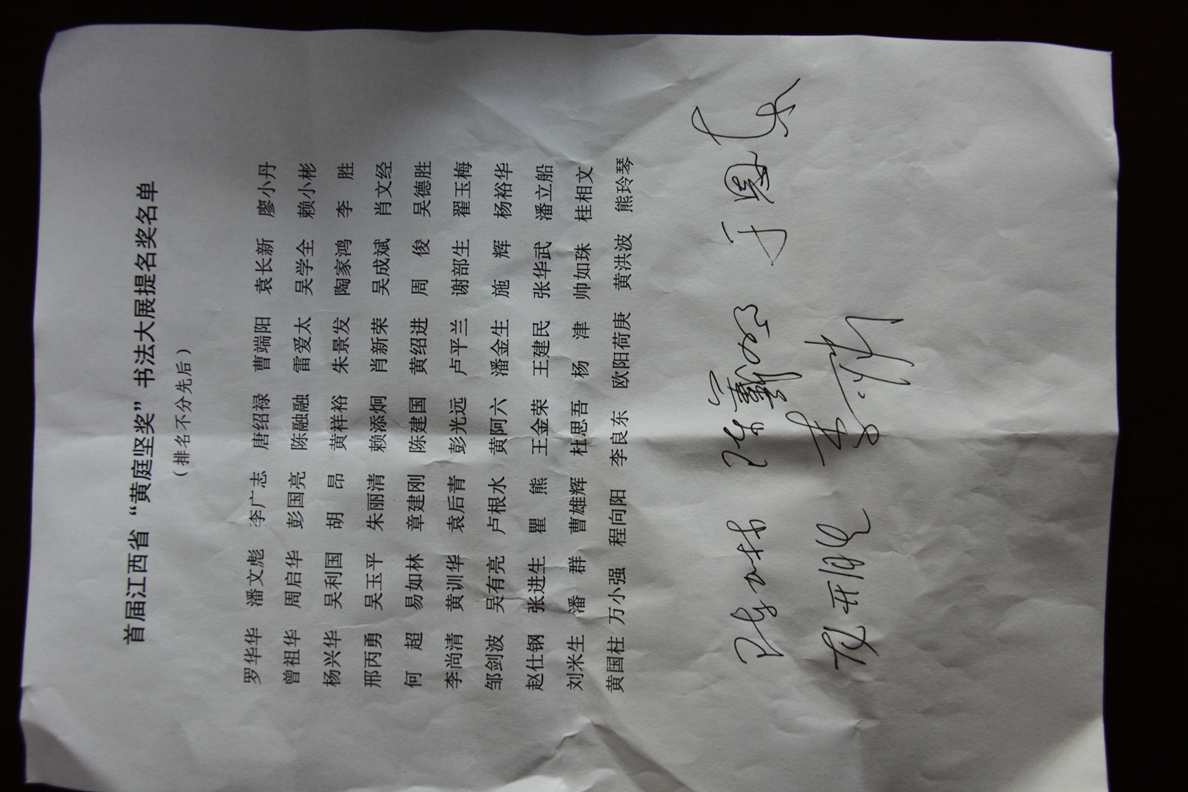 首届江西省“黄庭坚奖”书法大展提名奖名单
（排名不分先后）
罗华华 潘文彪 李广志 唐绍禄 曹端阳 袁长新 廖小丹
曾祖华 周启华 彭国亮 陈融融 雷爱太 吴学全 赖小彬
杨兴华 吴利国 胡 昂 黄祥裕 朱景发 陶家鸿 李 胜
邢丙勇 吴玉平 朱丽清 赖添炯 肖新荣 吴成斌 肖文经
何 超 易如林 章建刚 陈建国 黄绍进 周 俊 吴德胜
李尚清 黄训华 袁后青 彭光远 卢平兰 谢部生 翟玉梅
邹剑波 吴有亮 卢根水 黄阿六 潘金生 施 辉 杨裕华
赵仕钢 张进生 瞿 熊 王金荣 王建民 张华武 潘立船
刘米生 潘 群 曹雄辉 杜思吾 杨 津 帅如珠 桂相文
黄国柱 万小强 程向阳 李良东 欧阳荷庚 黄洪波 熊玲琴
于恩东